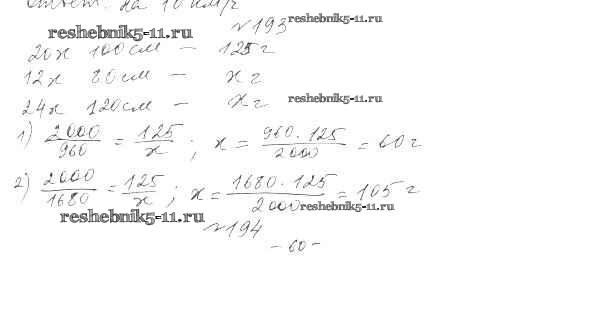 Ответ: на 10 км/ч
№193 reshebnik5-11.ru
reshebnik5-11.ru
20х 100 см — 125 г
12х 80 см — х г
24х 120 см — х г reshebnik5-11.ru
1) 2000/960 = 125/х ; х = 960·125/2000 = 60 г
2) 2000/1680 = 125/х ; х = 1680·125/2000 = 105 г
reshebnik5-11.ru reshebnik5-11.ru
№194
- 60 -